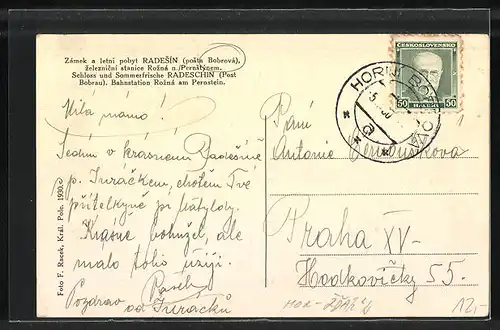 Zámek a letní pobyt RADEŠÍN (pošta Bobrová),
železniční stanice Rožná n./Pernštýnem.
Schloss und Sommerfrische RADESCHIN (Post
Bobrau). Bahnstation Rožná am Pernstein.
Milá mámo!
Sedím v krásném Radešíně
p. Juráčkem, chotěm Tvé
přítelkyně
Krásné bohužel, ale
málo toho užiji.
Pozdrav
od Juráčků
Foto F. Rosek, Král. Pole. 1930.
ČESKOSLOVENSKO
50 HALÉŘŮ 50
HORNÍ BOBROVÁ
Paní
Antonie
Praha XV-
Hodkovičky 55.
12,-